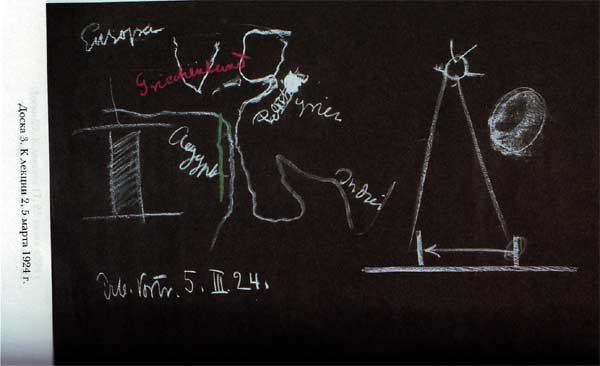 Доска 3. К лекции 2, 5 марта 1924 г.
Europa
Griechenland
Indien
Arb. Vortr. 5. III. 24.